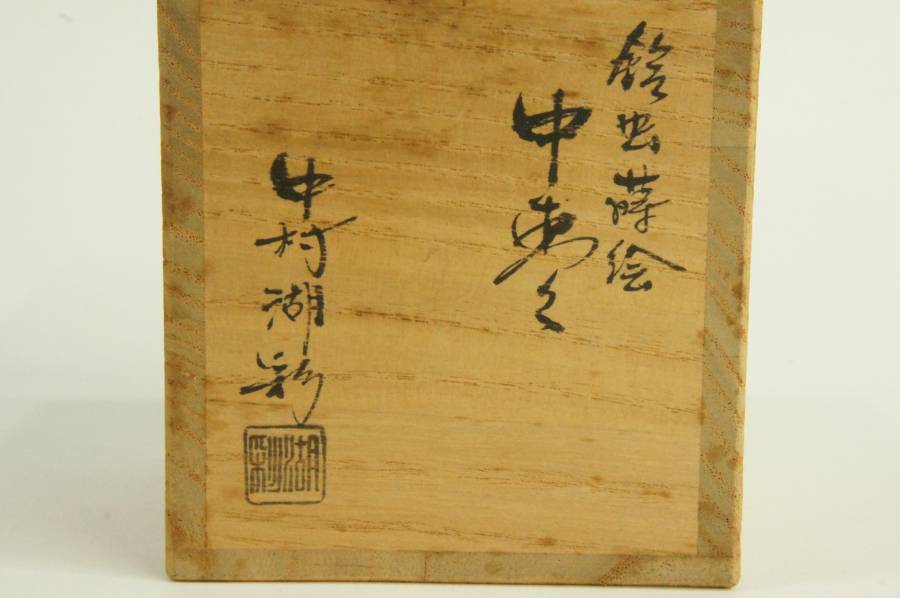 鈴虫蒔絵
中棗
中村湖彩
湖彩